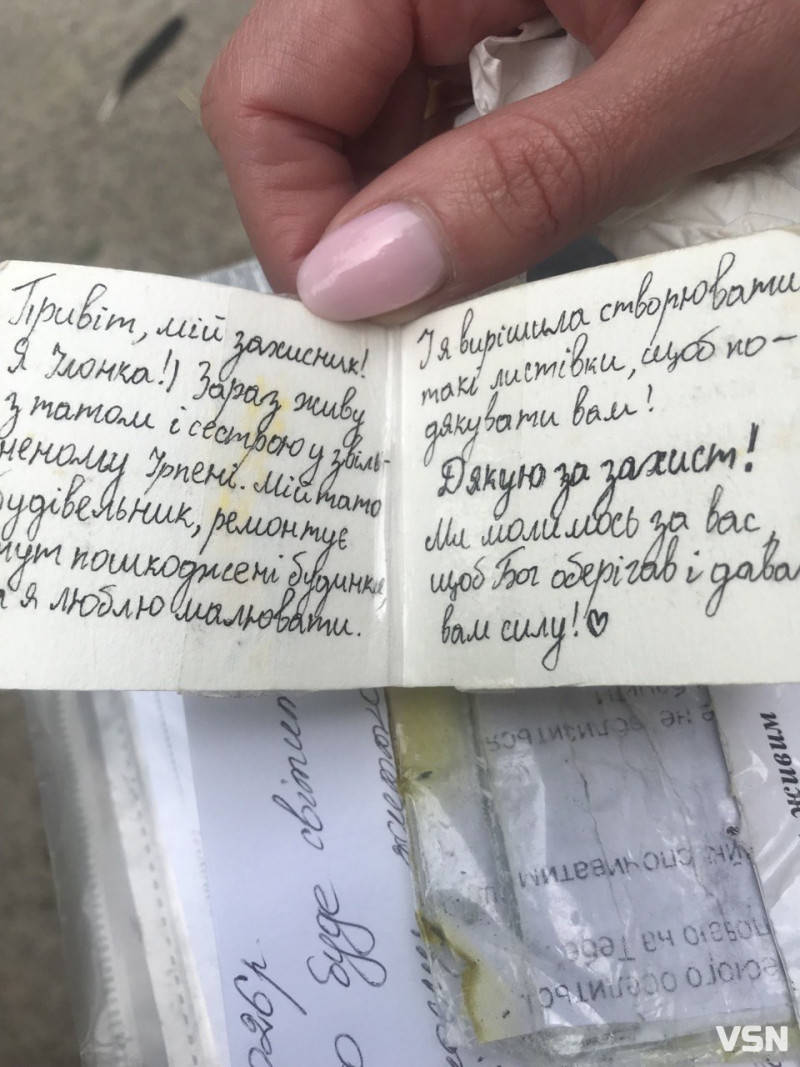 Привіт, мій захисник!
Я Ілонка!) Зараз живу
з татом і сестрою у звіль-
неному Ірпені. Мій тато
будівельник, ремонтує
тут пошкоджені будинки,
а я люблю малювати.
І я вирішила створювати
такі листівки, щоб по-
дякувати вам!
Дякую за захист!
Ми молимось за вас,
щоб Бог оберігав і давав
вам силу! ♡
026р.
буде світит
живим
не зблизиться
спочиватим
на Тебе
оселиться
VSN